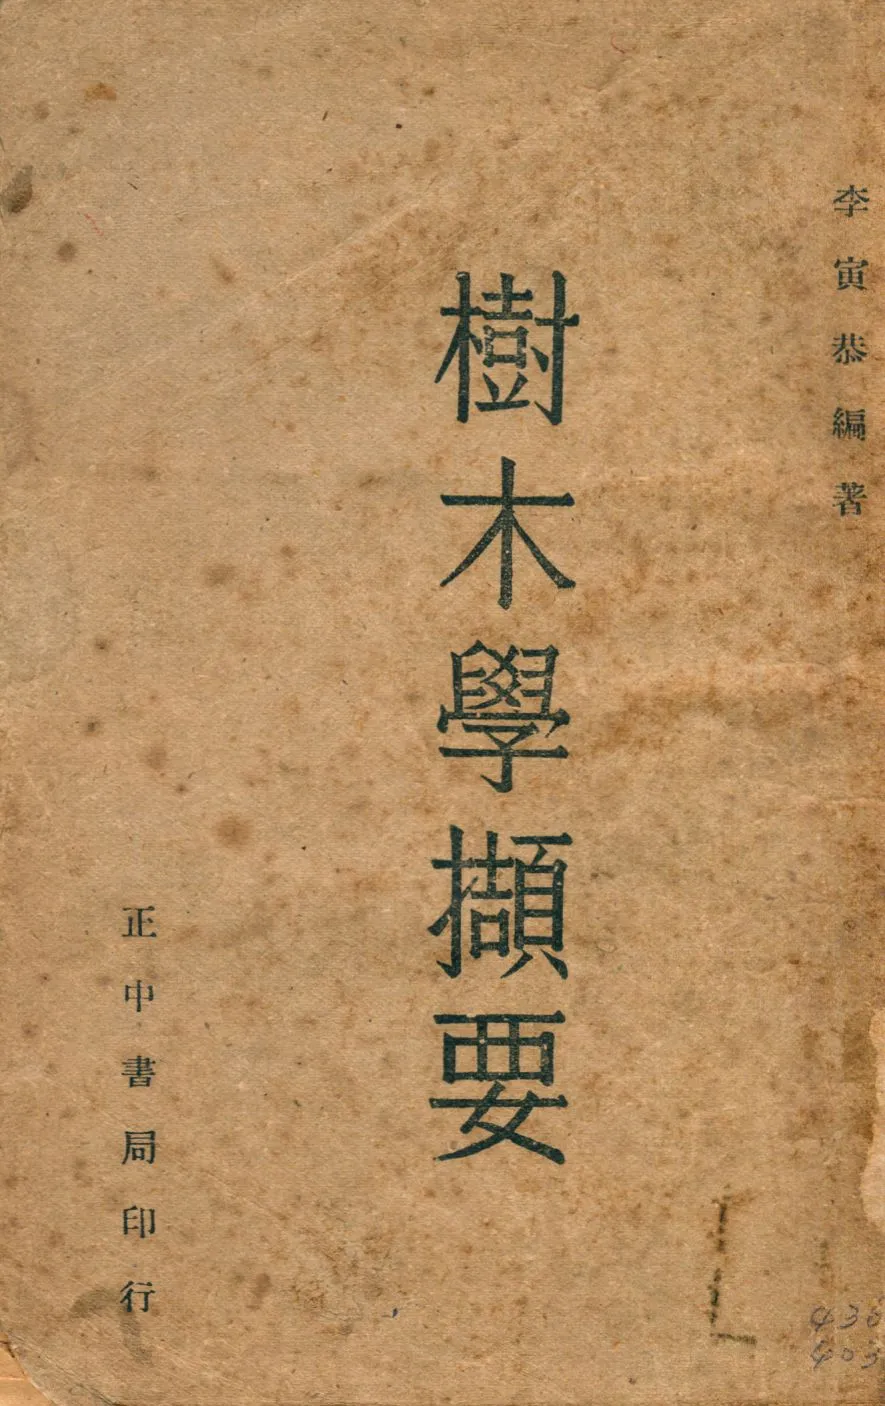 李寅恭編著
樹木學擷要
正中書局印行